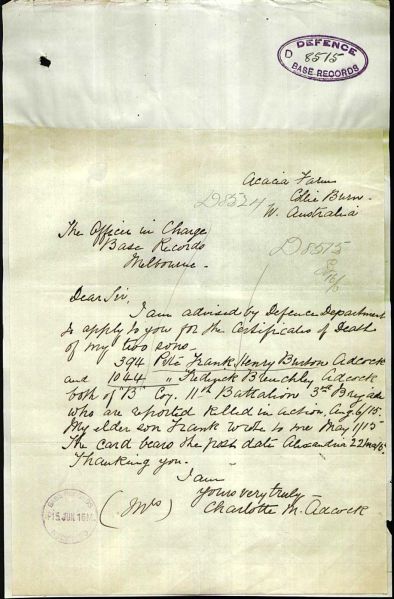 DEFENCE
8515
BASE RECORDS
Acacia Farm
Collie Burn
W. Australia
D8524
The Officer in Charge
Base Records
Melbourne.
D8515
Dear Sir,
I am advised by Defence Department
to apply to you for the Certificates of Death
of my two sons.
394 Pte Frank Henry Burton Adcock
and 1044 " Fredrick Blenchley Adcock
both of "B" Coy. 11th Battalion 3rd Brigade
who are reported killed in action, Aug 6/15.
My elder son Frank wrote to me May 1/15
The card bears the post date Alexandria 22 May 15.
Thanking you.
I am
yours very truly
(Mrs) Charlotte M. Adcock
15 JUN 16